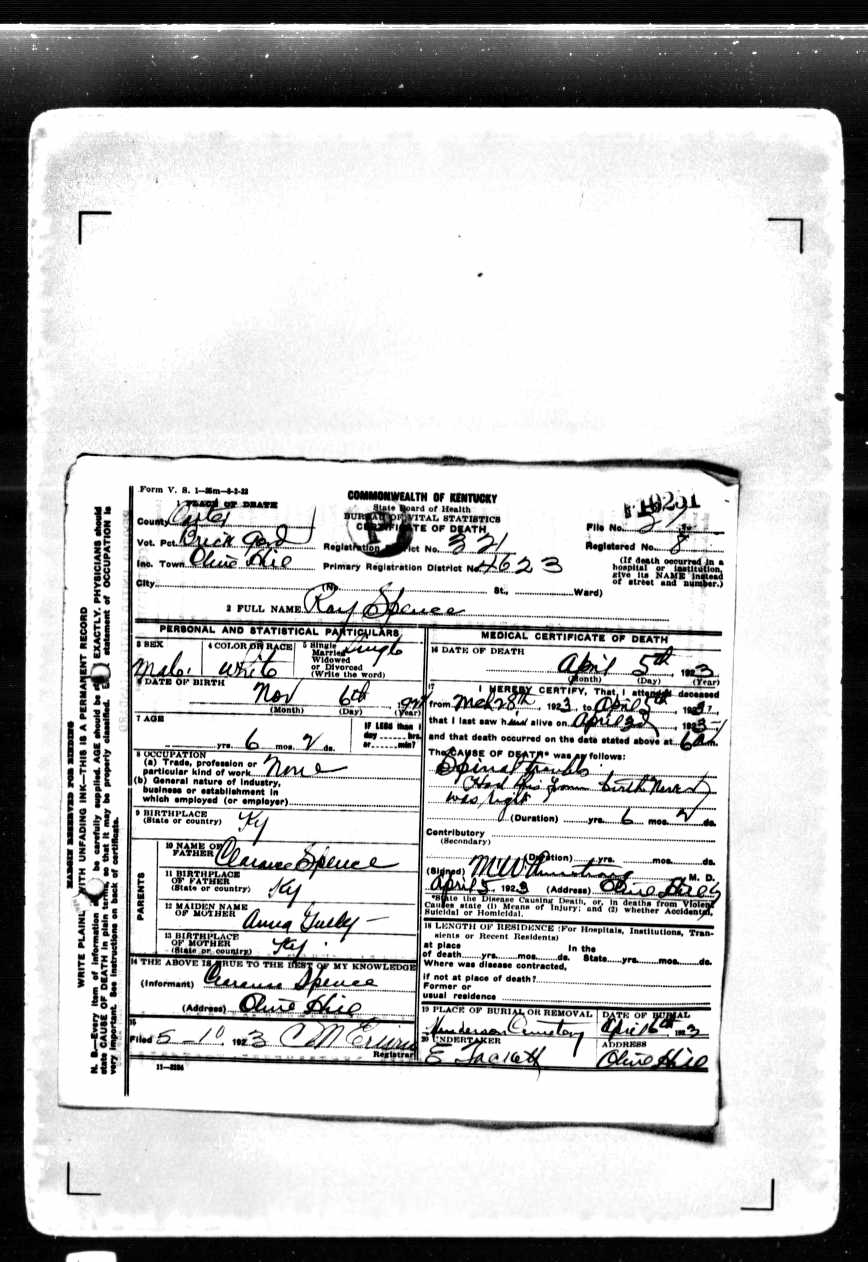 Form V. S. 1—25m—6-2-22
COMMONWEALTH OF KENTUCKY
State Board of Health
BUREAU OF VITAL STATISTICS
CERTIFICATE OF DEATH
1 PLACE OF DEATH
County Carter
Vot. Pct. Brick Yard
Inc. Town Olive Hill
City
Registration District No. 321
Primary Registration District No. 4623
(No. St., Ward)
File No.
Registered No. 8
(If death occurred in a
hospital or institution,
give its NAME instead
of street and number.)
2 FULL NAME Ray Spence
PERSONAL AND STATISTICAL PARTICULARS
3 SEX
Male
4 COLOR OR RACE
White
5 Single
Married
Widowed
or Divorced
(Write the word)
Single
6 DATE OF BIRTH
Nov 6th
(Month) (Day) (Year)
7 AGE
yrs. 6 mos. 2 ds.
IF LESS than 1
day hrs.
or min?
8 OCCUPATION
(a) Trade, profession or
particular kind of work None
(b) General nature of industry,
business or establishment in
which employed (or employer)
9 BIRTHPLACE
(State or country) Ky
PARENTS
10 NAME OF
FATHER Clarence Spence
11 BIRTHPLACE
OF FATHER
(State or country) Ky
12 MAIDEN NAME
OF MOTHER Anna
13 BIRTHPLACE
OF MOTHER
(State or country) Ky.
14 THE ABOVE IS TRUE TO THE BEST OF MY KNOWLEDGE
(Informant) Clarence Spence
(Address) Olive Hill
15
Filed 5-10, 1923 C M Erwin
Registrar
11—3184
MEDICAL CERTIFICATE OF DEATH
16 DATE OF DEATH
April 5th, 1923
(Month) (Day) (Year)
17 I HEREBY CERTIFY, That I attended deceased
from Mch 28th, 1923, to April 5th, 1923,
that I last saw h alive on April 2d, 1923
and that death occurred on the date stated above at 6 a.m.
The CAUSE OF DEATH* was as follows:
Spinal trouble
Had this from birth Never
was right
(Duration) yrs. 6 mos. 2 ds.
Contributory
(Secondary)
(Duration) yrs. mos. ds.
(Signed) M W Armstrong M. D.
April 5, 1923 (Address) Olive Hill Ky
*State the Disease Causing Death, or, in deaths from Violent
Causes state (1) Means of Injury; and (2) whether Accidental,
Suicidal or Homicidal.
18 LENGTH OF RESIDENCE (For Hospitals, Institutions, Tran-
sients or Recent Residents)
at place In the
of death yrs. mos. ds. State yrs. mos. ds.
Where was disease contracted,
if not at place of death?
Former or
usual residence
19 PLACE OF BURIAL OR REMOVAL
Henderson Cemetery
DATE OF BURIAL
April 6th 1923
20 UNDERTAKER
E Tackett
ADDRESS
Olive Hill
MARGIN RESERVED FOR BINDING
WRITE PLAINLY, WITH UNFADING INK—THIS IS A PERMANENT RECORD
N. B.—Every item of information be carefully supplied. AGE should be EXACTLY. PHYSICIANS should
state CAUSE OF DEATH in plain terms, so that it may be properly classified. statement of OCCUPATION is
very important. See instructions on back of certificate.